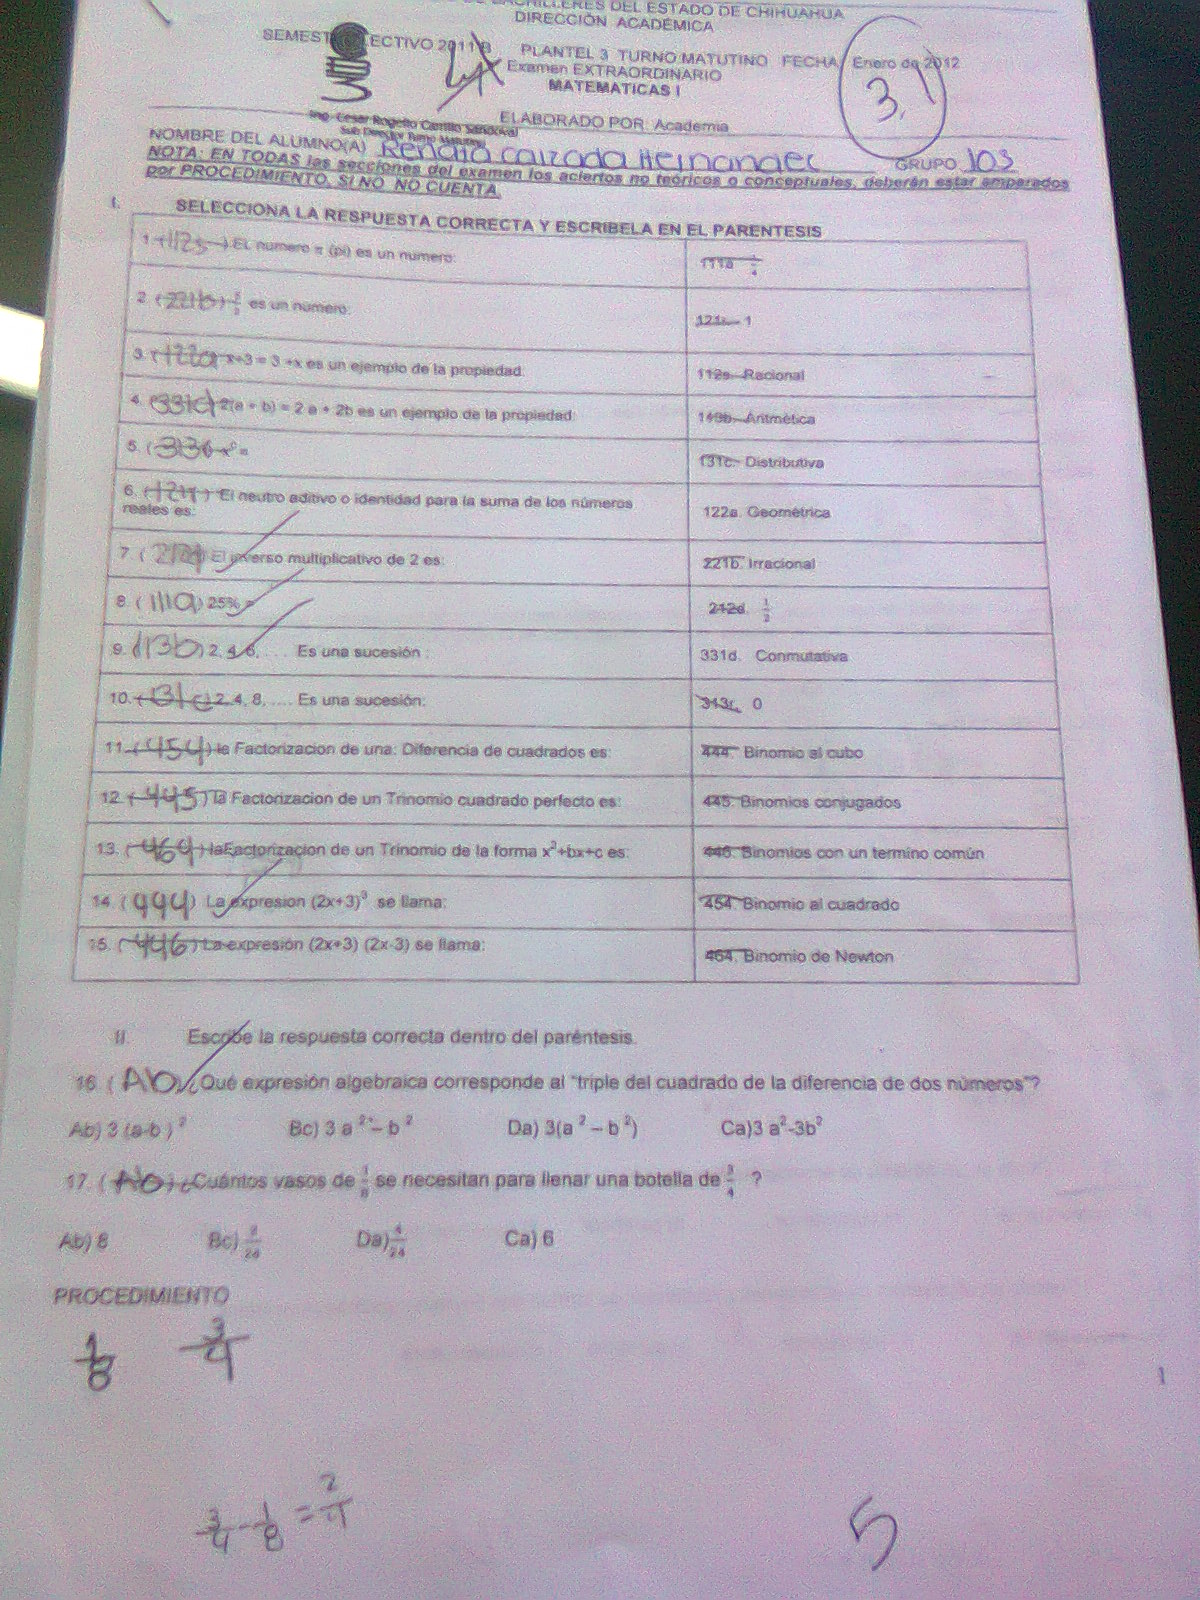 DEL ESTADO DE CHIHUAHUA
DIRECCIÓN ACADÉMICA
ECTIVO 2011 B PLANTEL 3 TURNO MATUTINO FECHA Enero de 2012
Examen EXTRAORDINARIO
MATEMATICAS I
3.1
Ing. Cesar Rogelio Carrillo Sandoval
ELABORADO POR: Academia
Sub Director Turno Matutino
NOMBRE DEL ALUMNO(A) Renata Calzada Hernandez GRUPO 103
NOTA: EN TODAS las secciones del examen los aciertos no teóricos o conceptuales, deberán estar amparados
por PROCEDIMIENTO, SI NO NO CUENTA.
I. SELECCIONA LA RESPUESTA CORRECTA Y ESCRIBELA EN EL PARENTESIS
1. (112s) EL numero π (pi) es un numero: 111a 1/4
2. (221b) es un numero: 1
3. (122a) x+3 = 3 +x es un ejemplo de la propiedad: 112s. Racional
4. (331c) 2(a + b) = 2 a + 2b es un ejemplo de la propiedad: Aritmética
5. 131c. Distributiva
6. El neutro aditivo o identidad para la suma de los números
reales es: 122a. Geométrica
7. ( ) El inverso multiplicativo de 2 es: 221b. Irracional
8. (111a) 25% = 212d. 1/2
9. (113b) 2, 4, 6, .... Es una sucesión : 331d. Conmutativa
10. (131c) 2, 4, 8, .... Es una sucesión: 0
11. (454) la Factorizacion de una: Diferencia de cuadrados es: 444. Binomio al cubo
12. (445) la Factorizacion de un Trinomio cuadrado perfecto es: 445. Binomios conjugados
13. (464) la Factorizacion de un Trinomio de la forma x²+bx+c es: 446. Binomios con un termino común
14. (444) La expresion (2x+3)³ se llama: 454. Binomio al cuadrado
15. (446) La expresión (2x+3) (2x-3) se llama: 464. Binomio de Newton
II. Escribe la respuesta correcta dentro del paréntesis.
16. (Ab) ¿Qué expresión algebraica corresponde al "triple del cuadrado de la diferencia de dos números"?
Ab) 3 (a-b )² Bc) 3 a² – b² Da) 3(a² – b²) Ca)3 a²-3b²
17. (Ab) ¿Cuántos vasos de 1/8 se necesitan para llenar una botella de 3/4 ?
Ab) 8 Bc) Da) 4/24 Ca) 6
PROCEDIMIENTO
1/8 3/4
1
3/4 - 1/8 = 2/4
5